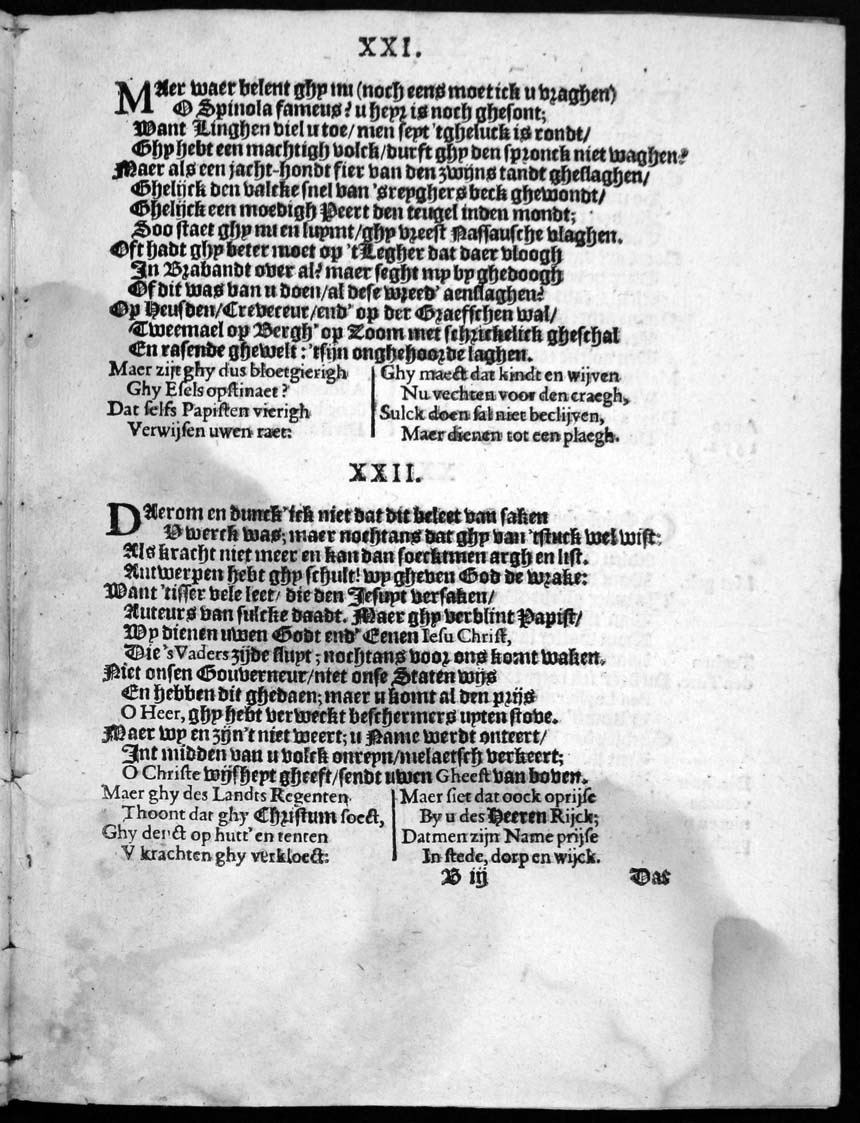 XXI.
MAer waer belent ghy nu (noch eens moet ick u vraghen)
O Spinola fameus? u heyr is noch ghesont;
Want Linghen viel u toe/ men seyt 'tgheluck is rondt/
Ghy hebt een machtigh volck/ durft ghy den spronck niet waghen?
Maer als een jacht-hondt fier van den zwijns tandt gheslaghen/
Ghelijck den valcke snel van 'sreyghers beck ghewondt/
Ghelijck een moedigh Peert den teugel inden mondt;
Soo staet ghy nu en luymt/ ghy vreest Nassausche vlaghen.
Oft hadt ghy beter moet op 't Legher dat daer vloogh
In Brabandt over al? maer seght my by ghedoogh
Of dit was van u doen/ al dese wreed' aenslaghen?
Op Heusden/ Creveceur/ end' op der Graeffschen wal/
Tweemael op Bergh' op Zoom met schrickelick gheschal
En rasende ghewelt: 'tsijn onghehoorde laghen.
Maer zijt ghy dus bloetgierigh
Ghy Esels opstinaet?
Dat selfs Papisten vierigh
Verwijsen uwen raet:
Ghy maect dat kindt en wijven
Nu vechten voor den craegh,
Sulck doen sal niet beclijven,
Maer dienen tot een plaegh.
XXII.
DAerom en dunck' ick niet dat dit beleet van saken
V werck was; maer nochtans dat ghy van 'tstuck wel wist:
Als kracht niet meer en kan dan soecktmen argh en list.
Antwerpen hebt ghy schult! wy gheven God de wrake:
Want 'tisser vele leet/ die den Jesuyt versaken/
Auteurs van sulcke daadt. Maer ghy verblint Papist/
Wy dienen uwen Godt end' Eenen Iesu Christ,
Die 's Vaders zijde sluyt; nochtans voor ons komt waken.
Niet onsen Gouverneur/ niet onse Staten wijs
En hebben dit ghedaen; maer u komt al den prijs
O Heer, ghy hebt verweckt beschermers upten stove.
Maer wy en zijn't niet weert; u Name werdt onteert/
Int midden van u volck onreyn/ melaetsch verkeert;
O Christe wijsheyt gheeft/ sendt uwen Gheest van boven.
Maer ghy des Landts Regenten
Thoont dat ghy Christum soect,
Ghy denct op hutt' en tenten
V krachten ghy verkloect:
Maer siet dat oock oprijse
By u des Heeren Rijck;
Datmen zijn Name prijse
In stede, dorp en wijck.
B iij
Das